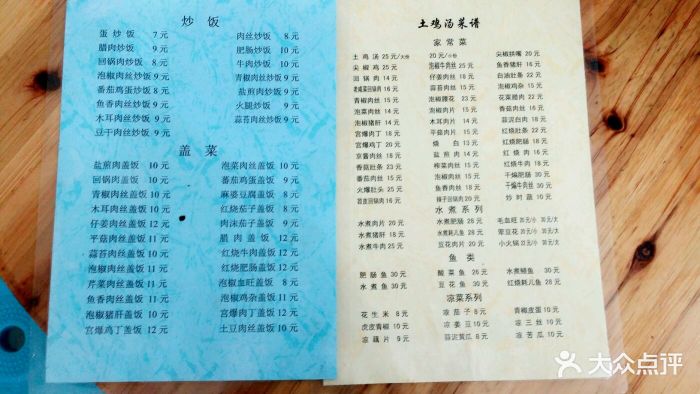 炒饭
蛋炒饭 7元 肉丝炒饭 8元
腊肉炒饭 9元 肥肠炒饭 10元
回锅肉炒饭 9元 牛肉炒饭 10元
泡椒肉丝炒饭 9元 青椒肉丝炒饭 9元
番茄鸡蛋炒饭 9元 盐煎肉炒饭 9元
鱼香肉丝炒饭 9元 火腿炒饭 9元
木耳肉丝炒饭 9元 蒜苔肉丝炒饭 9元
豆干肉丝炒饭 9元
盖菜
盐煎肉盖饭 10元 泡菜肉丝盖饭 10元
回锅肉盖饭 10元 番茄鸡蛋盖饭 9元
青椒肉丝盖饭 10元 麻婆豆腐盖饭 8元
木耳肉丝盖饭 10元 红烧茄子盖饭 8元
仔姜肉丝盖饭 12元 肉沫茄子盖饭 9元
平菇肉丝盖饭 11元 腊肉盖饭 12元
蒜苔肉丝盖饭 10元 红烧牛肉盖饭 12元
泡椒肉丝盖饭 11元 红烧肥肠盖饭 12元
芹菜肉丝盖饭 11元 泡椒血旺盖饭 8元
鱼香肉丝盖饭 11元 泡椒鸡杂盖饭 11元
泡椒猪肝盖饭 10元 宫爆肉丁盖饭 10元
宫爆鸡丁盖饭 12元 土豆肉丝盖饭 10元
土鸡汤菜谱
家常菜
土鸡汤 25元/大份 20元/小份 尖椒拱嘴 20元
尖椒鸡 25元 泡椒牛肉丝 25元 鱼香猪肝 16元
回锅肉 14元 仔姜肉丝 18元 白油肚条 22元
老咸菜回锅肉 16元 蒜苔肉丝 15元 泡椒鸡杂 15元
青椒肉丝 15元 泡椒腰花 23元 花菜腊肉 22元
泡菜肉丝 14元 泡椒肉丝 15元 香菇肉丝 16元
泡椒猪肝 14元 木耳肉片 14元 蒜泥白肉 18元
宫爆肉丁 18元 平菇肉片 13元 红烧肚条 22元
宫爆鸡丁 20元 烧白 13元 红烧肥肠 30元
京酱肉丝 18元 盐煎肉 14元 红烧肉 16元
香菇肚条 23元 榨菜肉丝 15元 红烧牛肉 18元
番茄肉丝 15元 鱼香肉丝 15元 干煸肥肠 30元
火爆肚头 25元 泡椒肥肠 20元 干煸牛肉丝 30元
苕皮回锅肉 16元 辣子回锅肉 20元 炒时蔬 10元
水煮系列
水煮肉片 20元 水煮肥肠 28元 毛血旺 20元/小 30元/大
水煮猪肝 18元 水煮耗儿鱼 28元 荤豆花 20元/小 30元/大
水煮牛肉 25元 豆花肉片 20元 小火锅 25元/小 35元/大
鱼类
肥肠鱼 30元 酸菜鱼 26元 水煮鳝鱼 30元
水煮鱼 30元 豆花鱼 30元 红烧耗儿鱼 28元
凉菜系列
花生米 8元 凉茄子 8元 青椒皮蛋 10元
虎皮青椒 10元 凉姜豆 10元 凉三丝 10元
凉藕片 9元 蒜泥黄瓜 8元 凉苦瓜 10元
大众点评